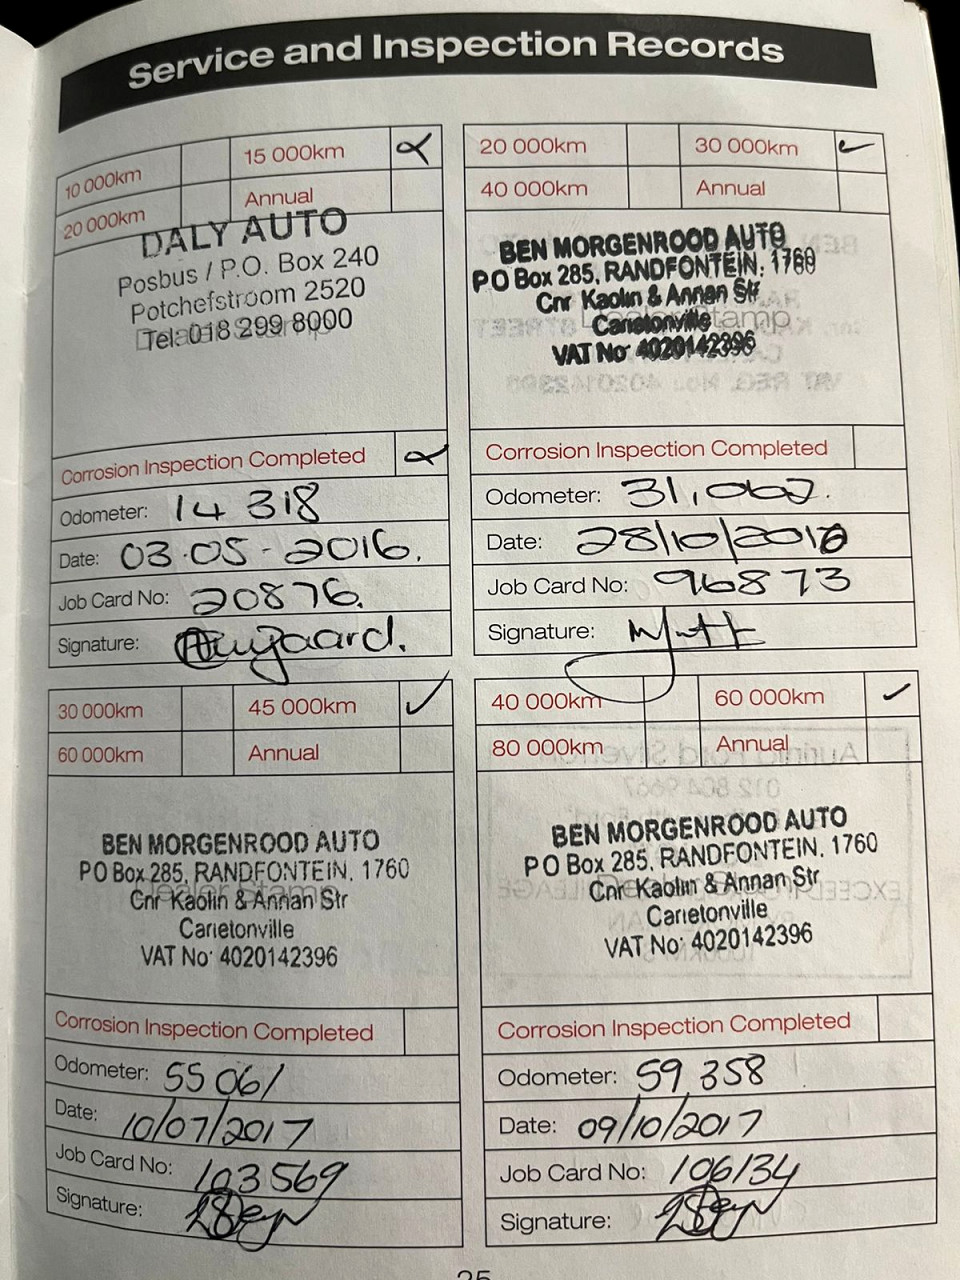 Service and Inspection Records
10 000km
15 000km
20 000km
Annual
DALY AUTO
Posbus / P.O. Box 240
Potchefstroom 2520
Tel: 018 299 8000
Dealer Stamp
Corrosion Inspection Completed
Odometer: 14 318
Date: 03.05-2016.
Job Card No: 20876.
Signature:
20 000km
30 000km
40 000km
Annual
BEN MORGENROOD AUTO
PO Box 285, RANDFONTEIN, 1760
Cnr Kaolin & Annan Str
Carletonville
VAT No: 4020142396
Dealer Stamp
Corrosion Inspection Completed
Odometer: 31,062.
Date: 28/10/2016
Job Card No: 96873
Signature:
30 000km
45 000km
60 000km
Annual
BEN MORGENROOD AUTO
PO Box 285, RANDFONTEIN, 1760
Dealer Stamp
Cnr Kaolin & Annan Str
Carletonville
VAT No: 4020142396
Corrosion Inspection Completed
Odometer: 55 061
Date: 10/07/2017
Job Card No: 103569
Signature:
40 000km
60 000km
80 000km
Annual
BEN MORGENROOD AUTO
PO Box 285, RANDFONTEIN, 1760
Cnr Kaolin & Annan Str
Carletonville
VAT No: 4020142396
Corrosion Inspection Completed
Odometer: 59 358
Date: 09/10/2017
Job Card No: 106134
Signature:
25